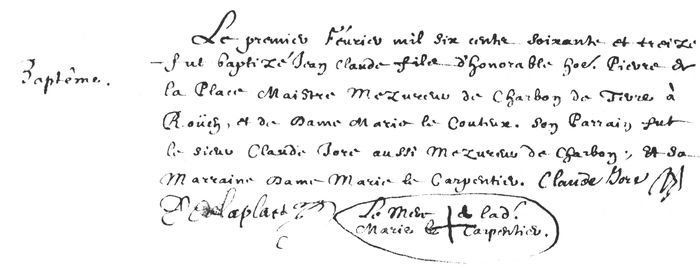 Le premier Février mil six cents soixante et treize
Baptême.
fut baptizé Jean Claude fils d'honorable hoe. Pierre de
la Place Maistre Mezureur de Charbon de Terre à
Roüen, et de Dame Marie le Couteux. son Parrain fut
le sieur Claude Jore aussi Mezureur de Charbon, et sa
Marraine Dame Marie le Carpentier. Claude Jore
P. delaplace
Le Merc de lad.
Marie le Carpentier.